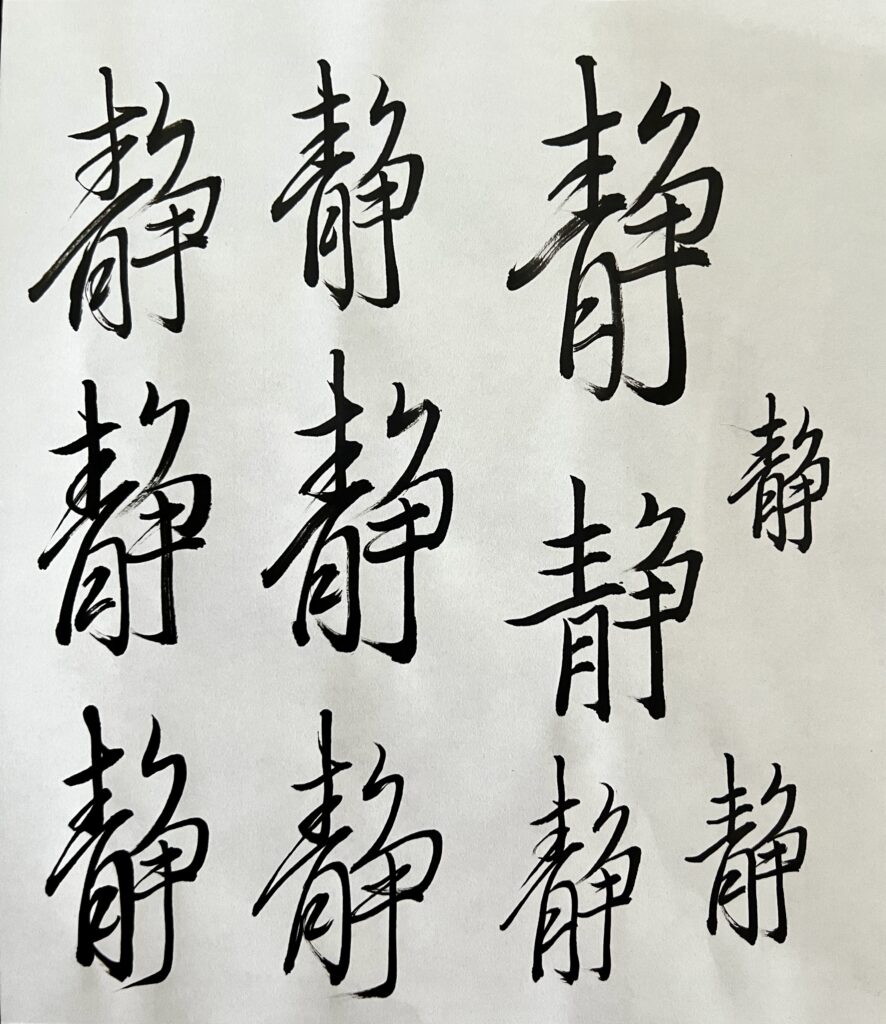 静 静 静
静 静 静 静
静 静 静 静